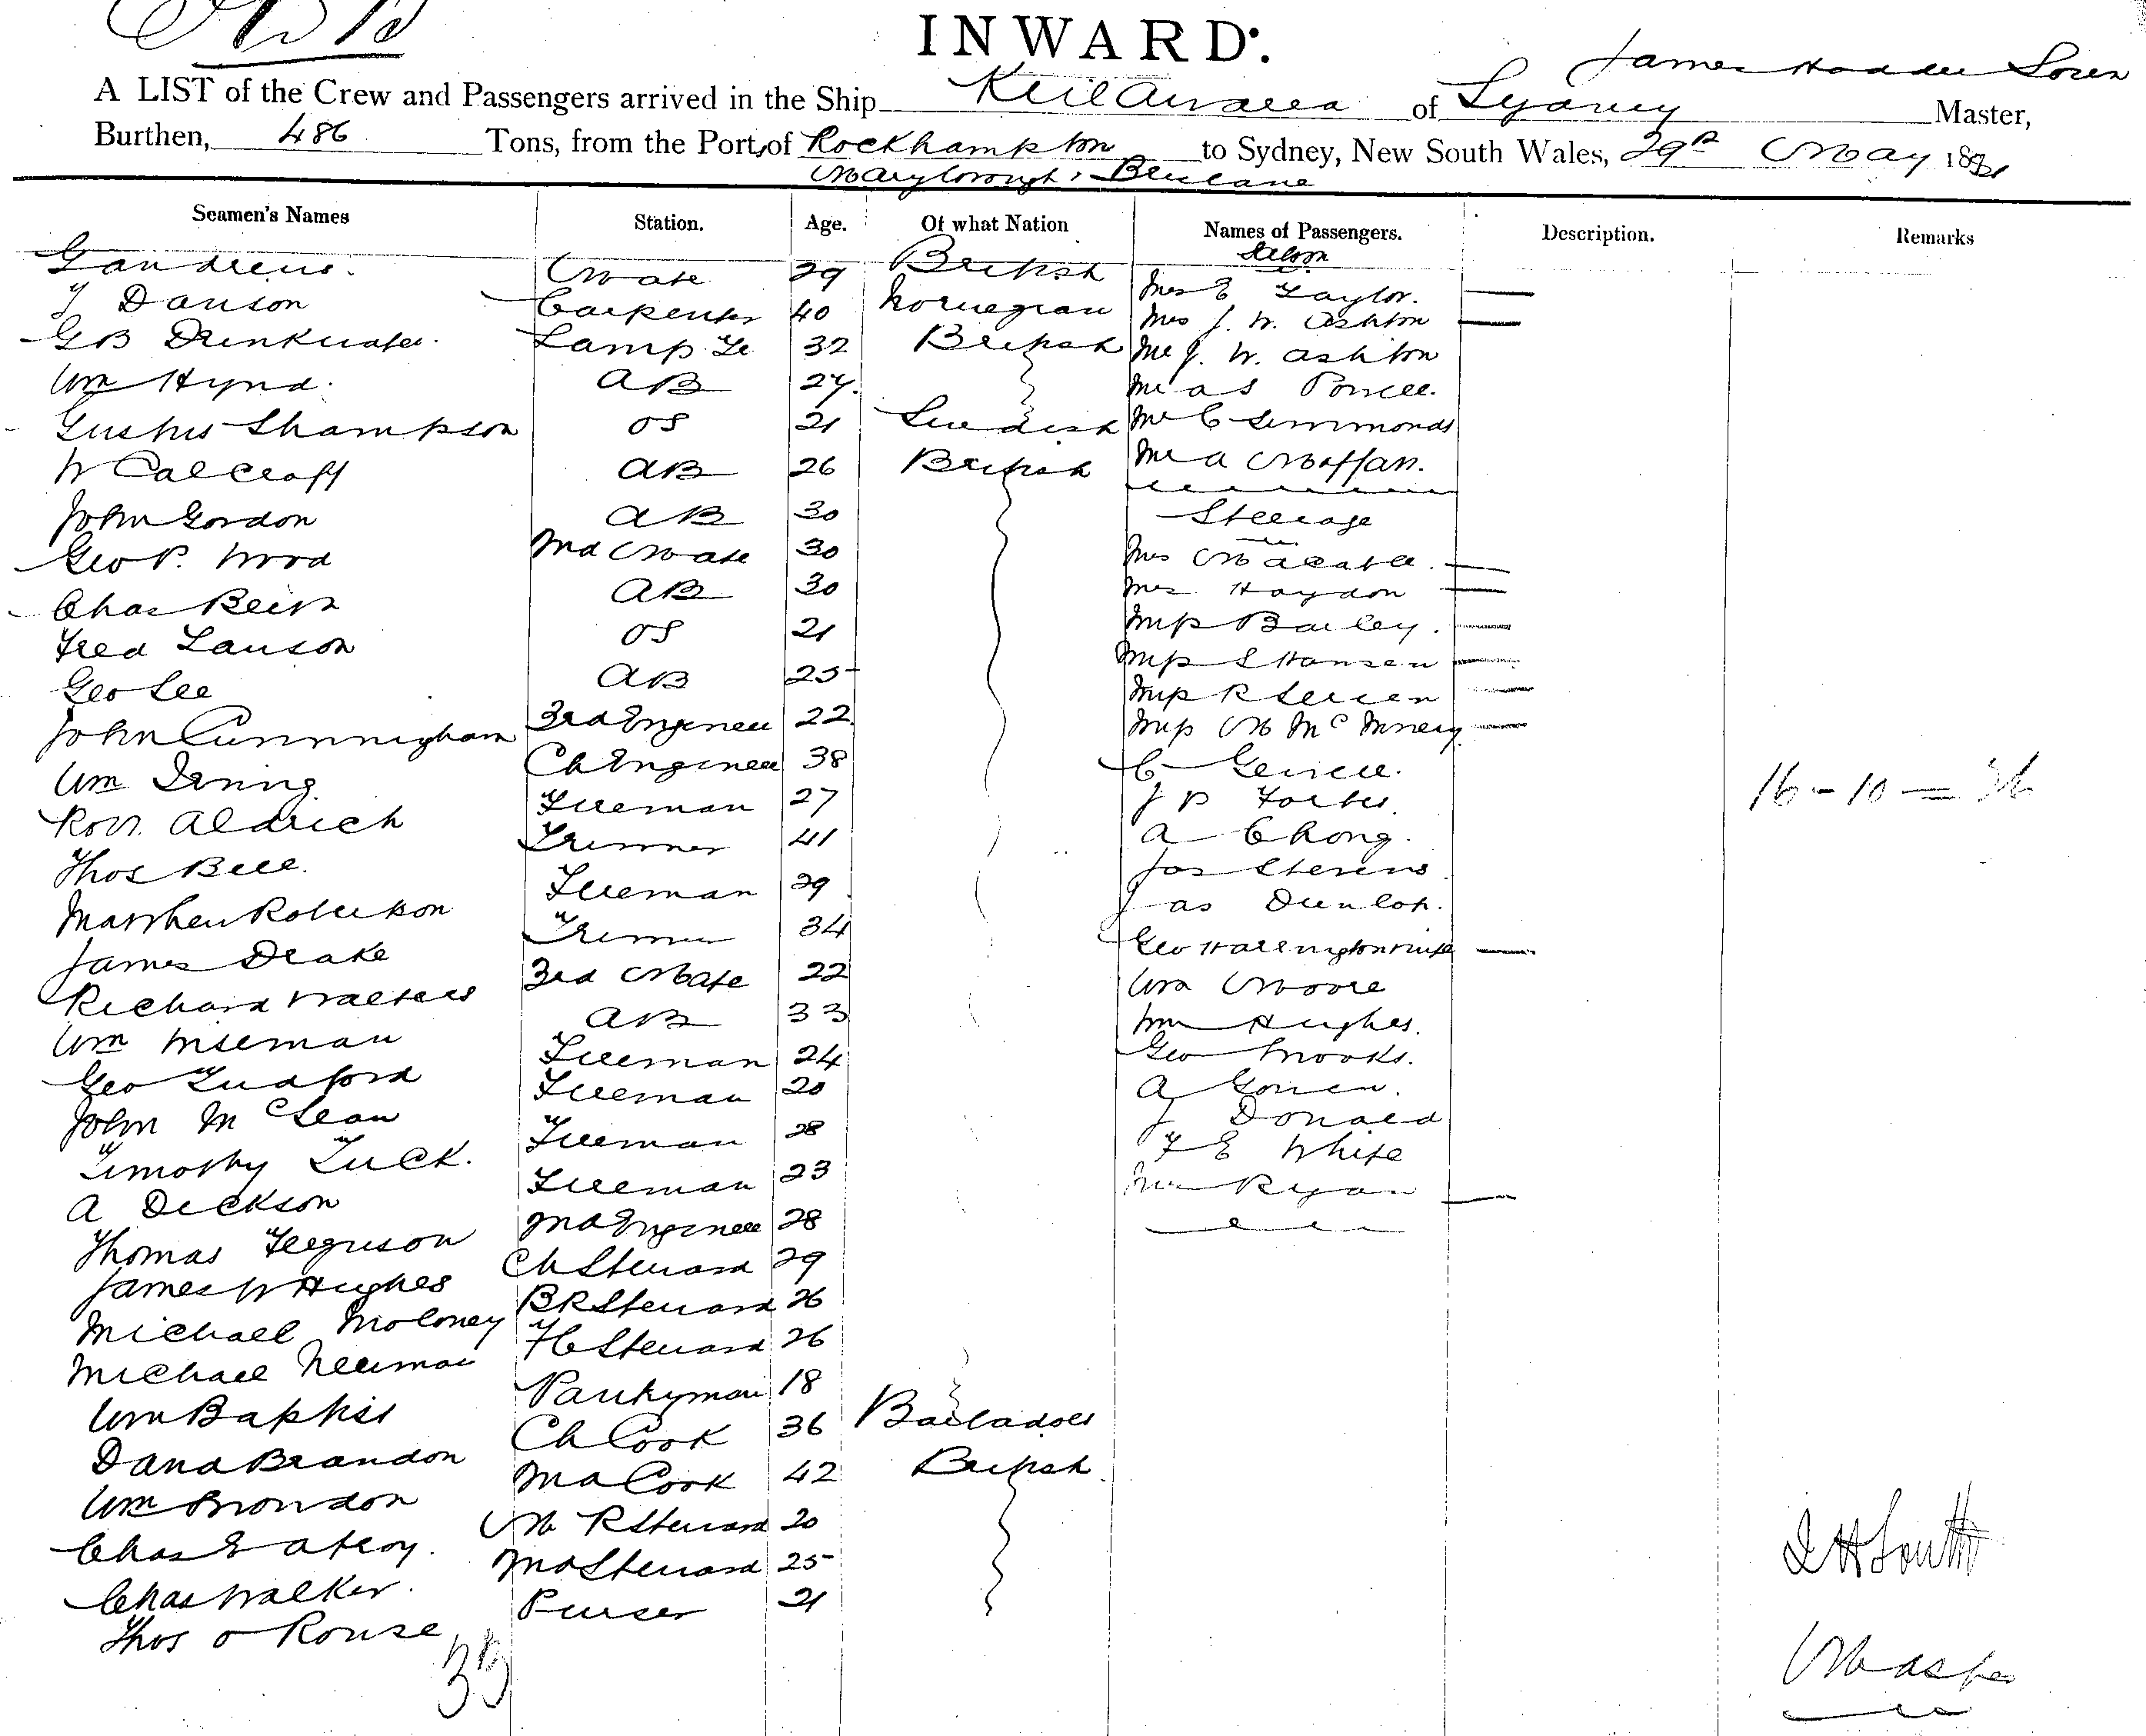 INWARD.
James
A LIST of the Crew and Passengers arrived in the Ship Keilawarra of Sydney Master,
Burthen, 486 Tons, from the Port, of Rockhampton to Sydney, New South Wales, 29th May 18
Maryborough & Brisbane
Seamen's Names Station. Age. Of what Nation Names of Passengers. Description. Remarks
Saloon
G Andrews. Mate 29 British Mrs E Taylor. —
J Dawson Carpenter 40 Norwegian Mrs J. W. Ashton —
GB Drinkwater. Lamp Tr 32 British Mr J. W. Ashton
Wm Hynd. AB 27. Mr A S Powell.
Thompson OS 21 Swedish Mr C Simmonds
W Calcroft AB 26 British Mr A Moffatt.
John Gordon AB 30 Steerage
Geo P. Wood 2nd Mate 30 Mrs
Chas AB 30 Mrs Haydon —
Fred Lawson OS 21 Miss Bailey. —
Geo Lee AB 25 Miss S Hansen —
John Cunningham 3rd Engineer 22 Miss R —
Wm Ch Engineer 38 Miss M —
Robt. Aldrich Fireman 27 C
Thos Bell. Trimmer 41 J P Forbes.
Matthew Robertson Fireman 29 A Chong.
James Drake Trimmer 34 Jas Stevens
Richard Walters 3rd Mate 22 Jas Dunlop.
Wm Wiseman AB 33 Geo Harrington & wife —
Geo Ludford Fireman 24 Wm Moore
John McLean Fireman 20 Wm Hughes.
Timothy Tuck. Fireman 28 Geo Brooks.
A Dickson Fireman 23 A
Thomas Ferguson 2nd Engineer 28 J Donald
James W Hughes Ch Steward 29 F E White
Michael Moloney BR Steward 26 Mrs Ryan —
Michael Newman FC Steward 26
Wm Baptist Pantryman 18
Brandon Ch Cook 36 Barbadoes
Wm 2nd Cook 42 British
Chas E M R Steward 20
Chas Walker. 2nd Steward 25
Thos O Rouse Purser 21
16 - 10 = 26
Master